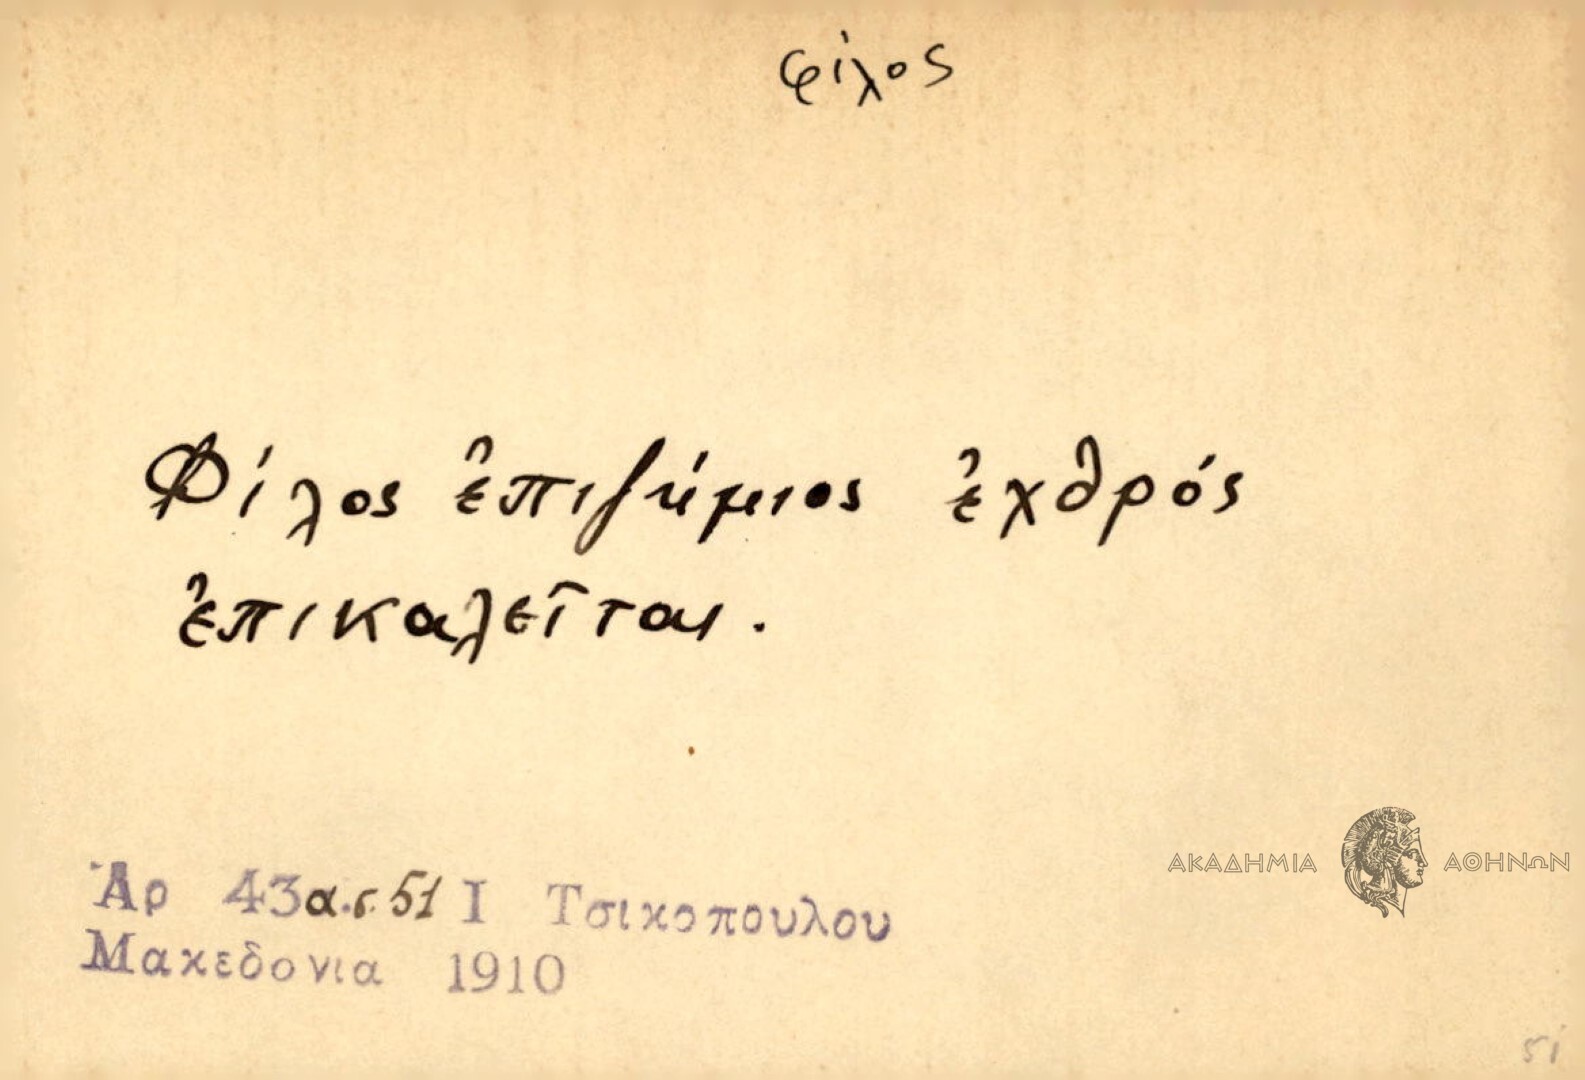 φίλος
Φίλος ἐπιζήμιος ἐχθρός
ἐπικαλεῖται.
ΑΚΑΔΗΜΙΑ ΑΘΗΝΩΝ
Ἀρ 43α.σ.51 Ι Τσικοπουλου
Μακεδονια 1910
51